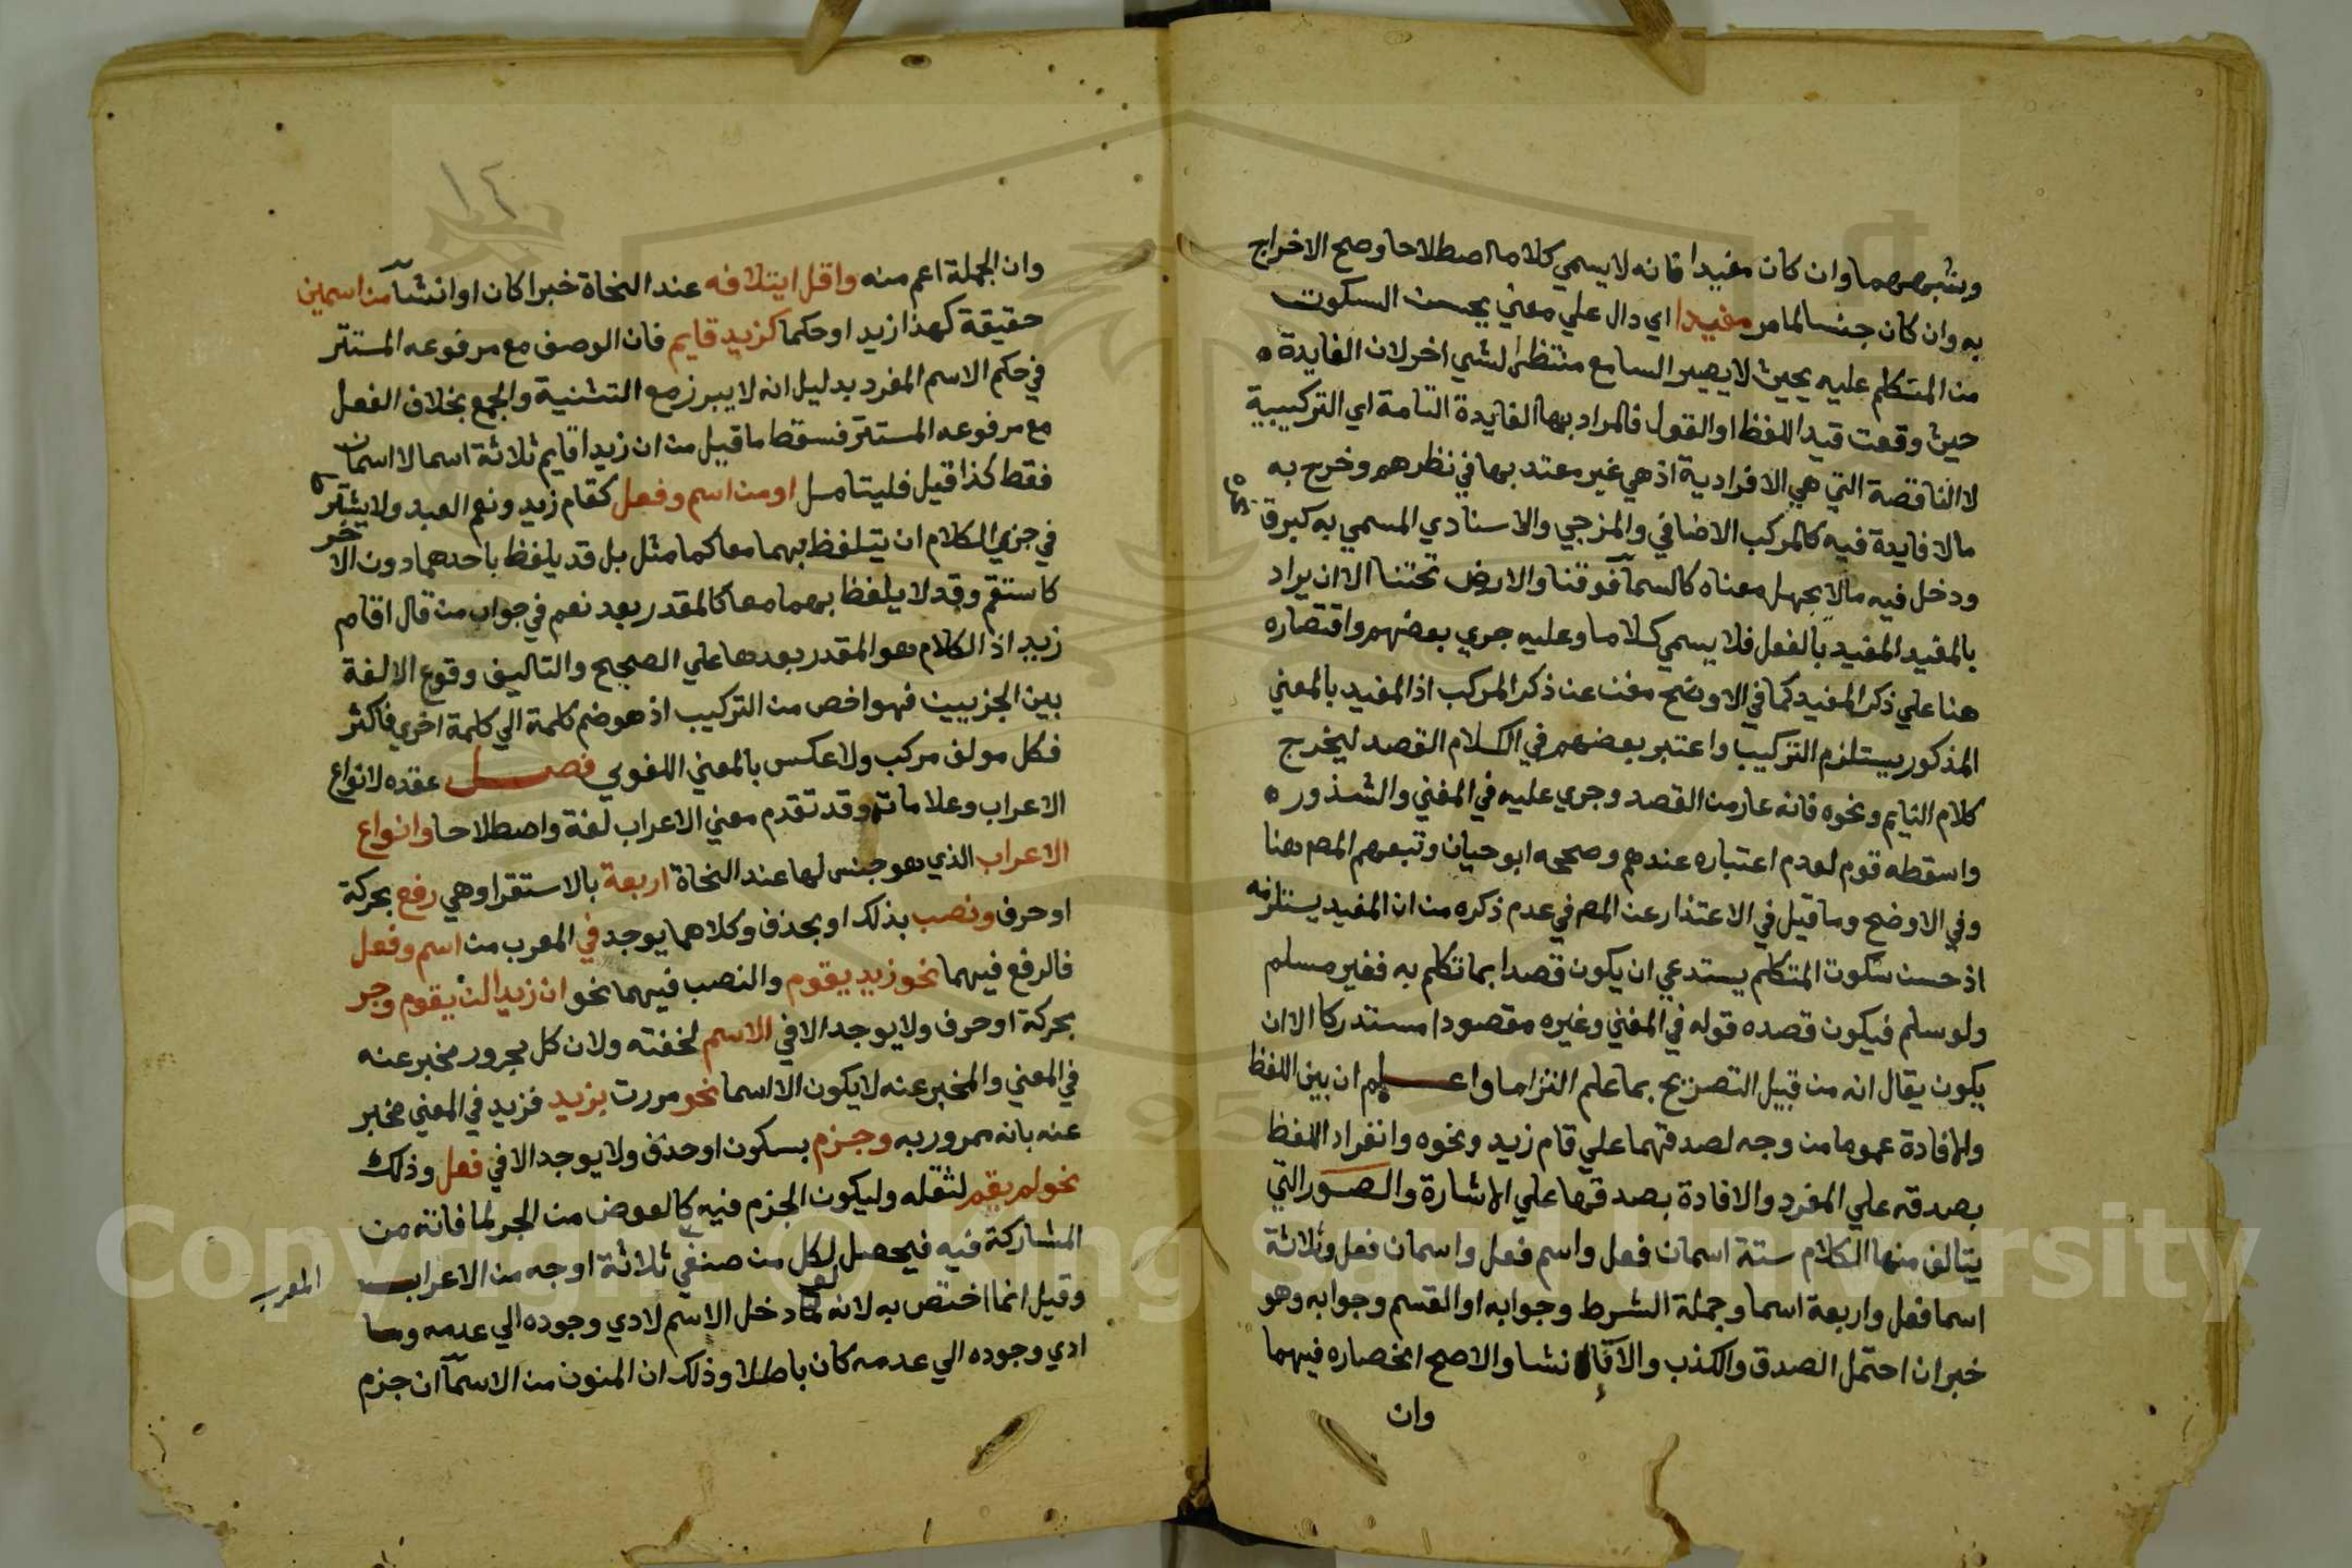 وشبههما وان كان مفيدا فانه لا يسمي كلاما اصطلاحا وصح الاخراج
به وان كان جنسا لما مر مفيدا اي دال علي معني يحسن السكوت
من المتكلم عليه بحيث لا يصير السامع منتظرا لشي اخر لان الفايدة
حيث وقعت قيد اللفظ او القول فالمراد بها الفايدة التامة اي التركيبية
لا الناقصة التي هي الافرادية اذ هي غير معتد بها في نظرهم وخرج به
مالا فايدة فيه كالمركب الاضافي والمزجي والاسنادي المسمي به كبرق نحره
ودخل فيه مالا يجهل معناه كالسمآ فوقنا والارض تحتنا الا ان يراد
بالمفيد المفيد بالفعل فلا يسمي كلاما وعليه جري بعضهم واقتصاره
هنا علي ذكر المفيد كما في الاوضح مغن عن ذكر المركب اذ المفيد بالمعني
المذكور يستلزم التركيب واعتبر بعضهم في الكلام القصد ليخرج
كلام النايم ونحوه فانه عار من القصد وجري عليه في المغني والشذور
واسقطه قوم لعدم اعتباره عندهم وصححه ابو حيان وتبعهم المص هنا
وفي الاوضح وما قيل في الاعتذار عن المص في عدم ذكره من ان المفيد يستلزمه
اذ حسن سكوت المتكلم يستدعي ان يكون قصدا بما تكلم به فغير مسلم
ولو سلم فيكون قصده قوله في المغني وغيره مقصودا مستدركا الا ان
يكون يقال انه من قبيل التصريح بما علم التزاما واعلم ان بين اللفظ
والافادة عموما من وجه لصدقهما علي قام زيد ونحوه وانفراد اللفظ
بصدقه علي المفرد والافادة بصدقها علي الاشارة والصور التي
يتالف منها الكلام ستة اسمان فعل واسم فعل واسمان فعل وثلاثة
اسما فعل واربعة اسما وجملة الشرط وجوابه او القسم وجوابه وهو
خبر ان احتمل الصدق والكذب والا فانشا والاصح انحصاره فيهما
وان
١٤
وان الجملة اعم منه واقل ايتلافه عند النحاة خبرا كان او انشآ من اسمين
حقيقة كهذا زيد او حكما كزيد قايم فان الوصف مع مرفوعه المستتر
في حكم الاسم المفرد بدليل انه لا يبرز مع التثنية والجمع بخلاف الفعل
مع مرفوعه المستتر فسقط ما قيل من ان زيدا قايم ثلاثة اسما لا اسمان
فقط كذا قيل فليتامل او من اسم وفعل كقام زيد ونعم العبد ولا يشترط
في جزي الكلام ان يتلفظ بهما معا كما مثل بل قد يلفظ باحدهما دون الاخر
كاستقم وقد لا يلفظ بهما معا كالمقدر بعد نعم في جواب من قال اقام
زيد اذ الكلام هو المقدر بعدها علي الصحيح والتاليف وقوع الالفة
بين الجزيين فهو اخص من التركيب اذ هو ضم كلمة الي كلمة اخري فاكثر
فكل مولف مركب ولا عكس بالمعني اللغوي فصل عقده لانواع
الاعراب وعلاماته وقد تقدم معني الاعراب لغة واصطلاحا وانواع
الاعراب الذي هو جنس لها عند النحاة اربعة بالاستقرا وهي رفع بحركة
او حرف ونصب بذلك او بحذف وكلاهما يوجد في المعرب من اسم وفعل
فالرفع فيهما نحو زيد يقوم والنصب فيهما نحو ان زيدا لن يقوم وجر
بحركة او حرف ولا يوجد الا في الاسم لخفته ولان كل مجرور مخبر عنه
في المعني والمخبر عنه لا يكون الا اسما نحو مررت بزيد فزيد في المعني مخبر
عنه بانه ممرور به وجزم بسكون او حذف ولا يوجد الا في فعل وذلك
نحو لم يقم لثقله وليكون الجزم فيه كالعوض من الجر لما فاته من
المشاركة فيه فيحصل لكل من صنفي ثلاثة اوجه من الاعراب
المعرب
وقيل انما اختص به لانه لو دخل الاسم لادي وجوده الي عدمه وما
ادي وجوده الي عدمه كان باطلا وذلك ان المنون من الاسمآ ان جزم